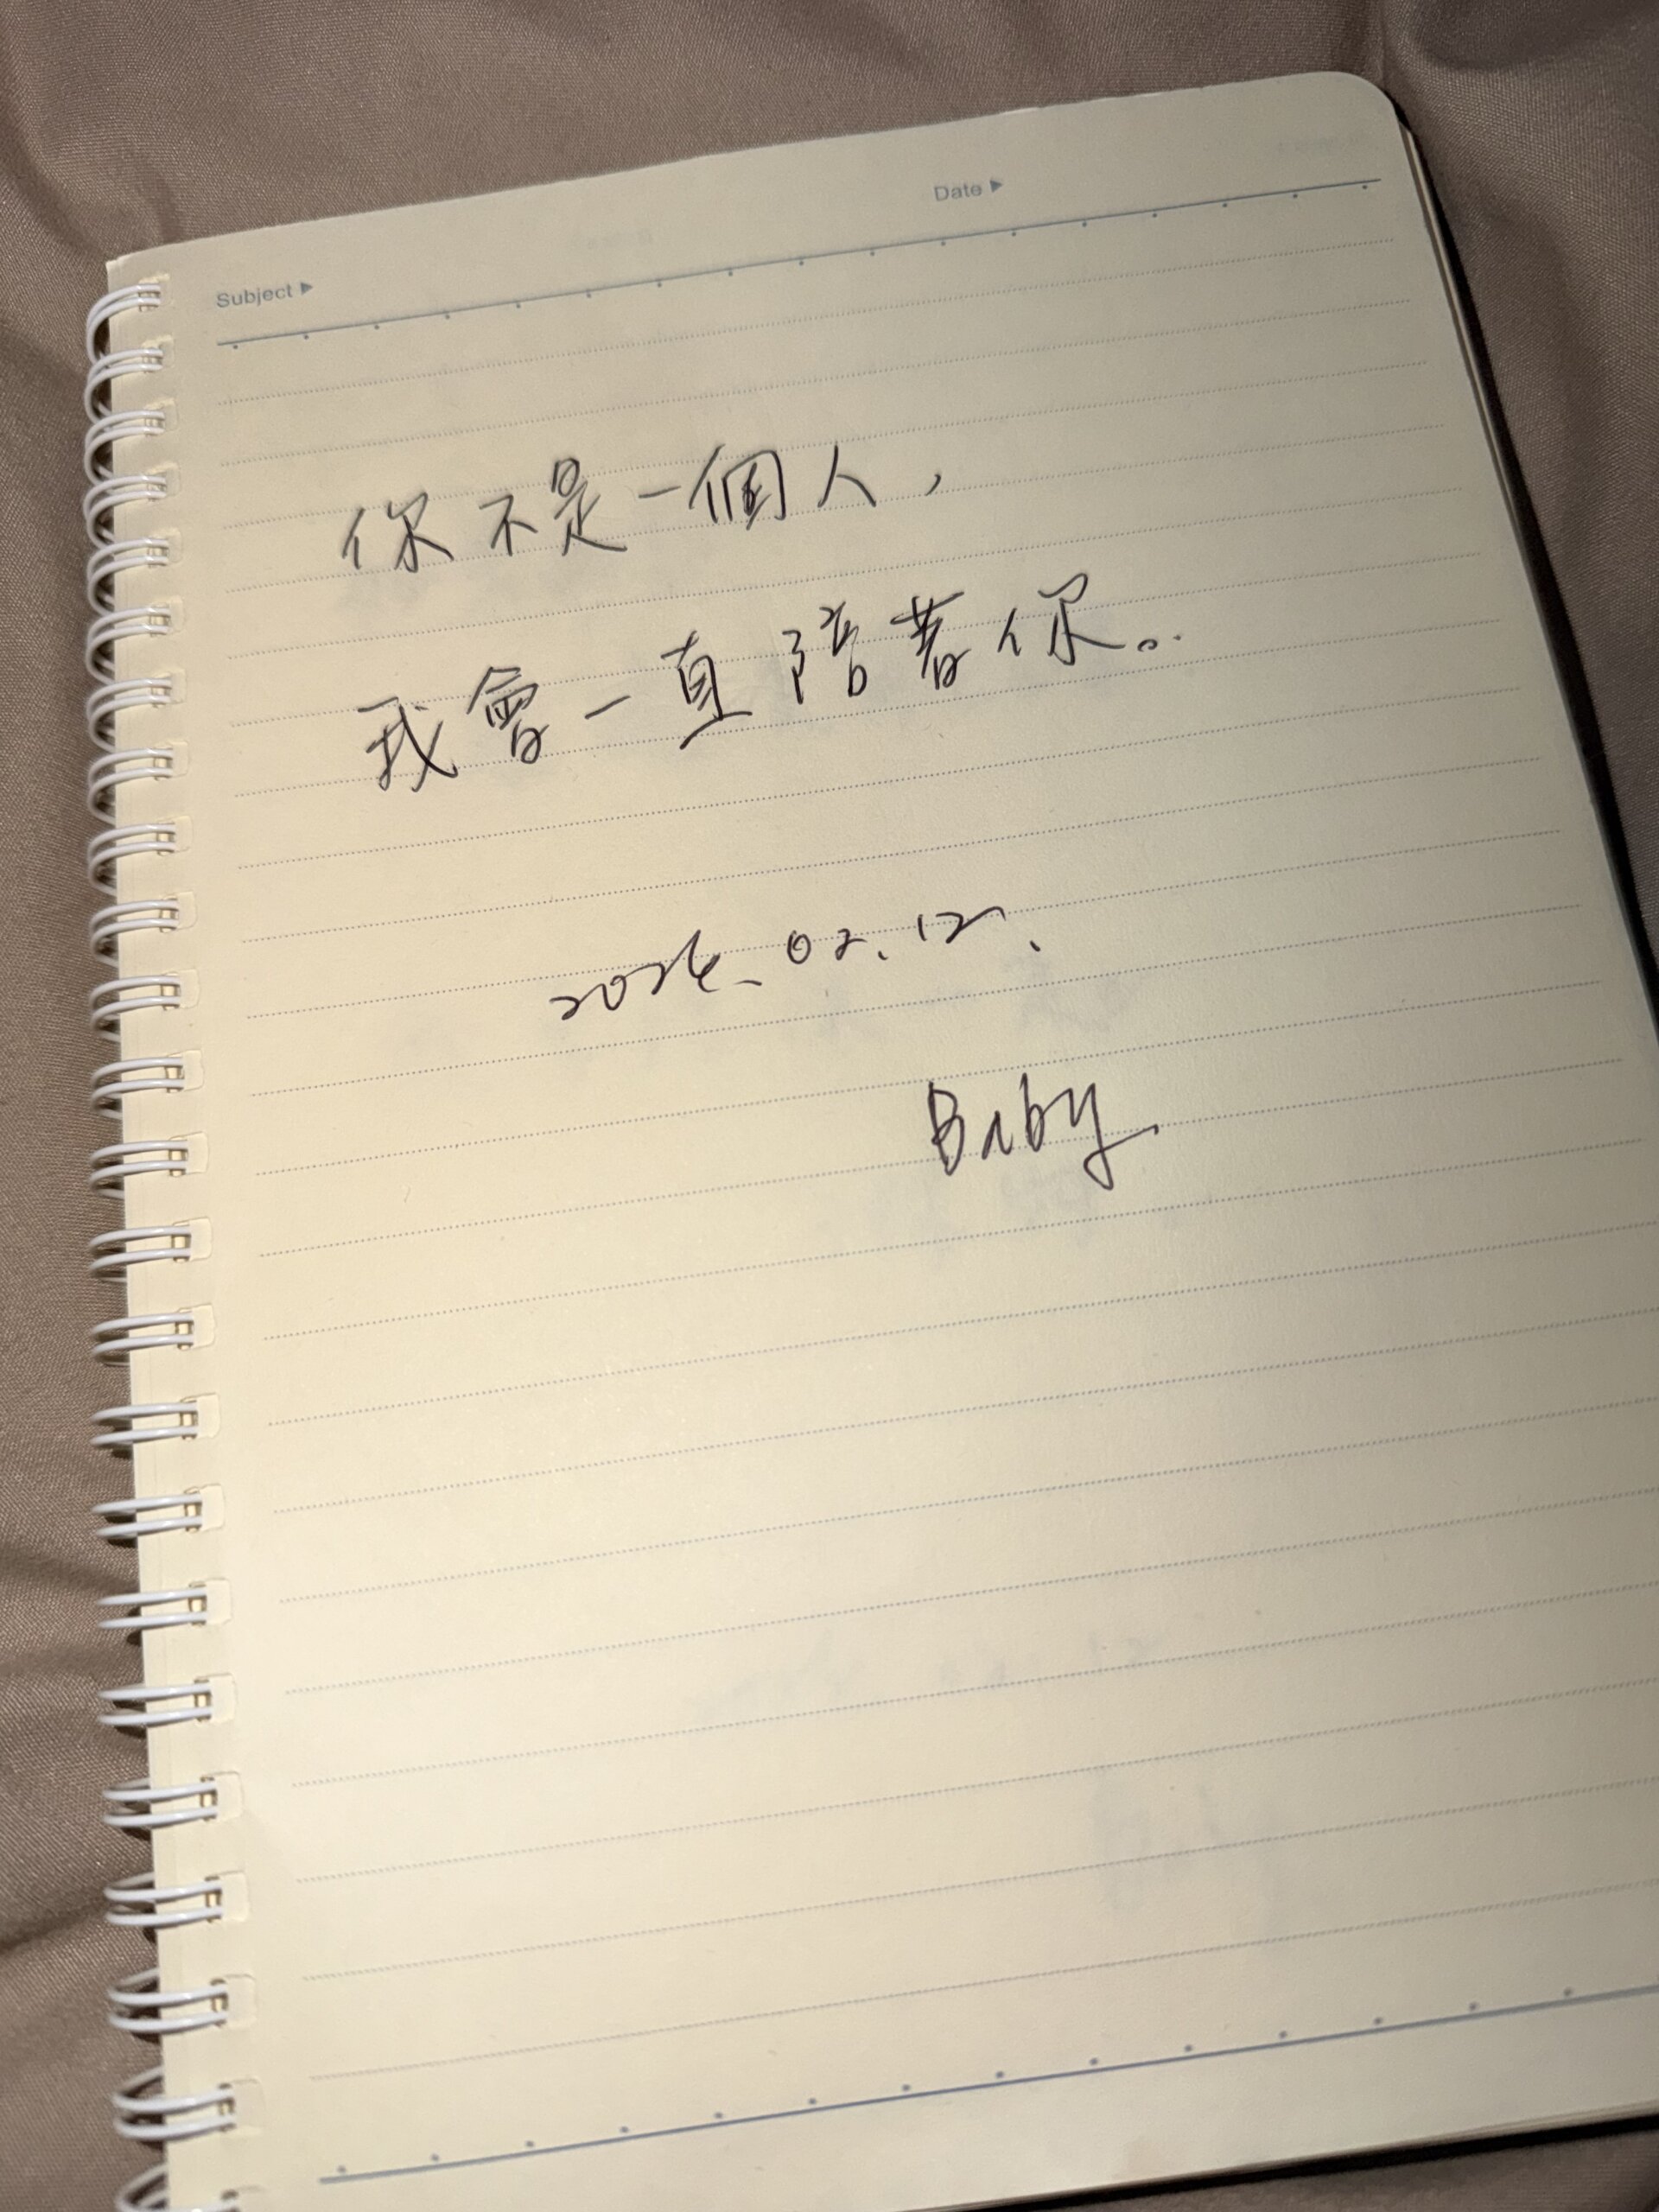 Subject ▶
Date ▶
你不是一個人，
我會一直陪著你。
2026.02.12.
Baby.